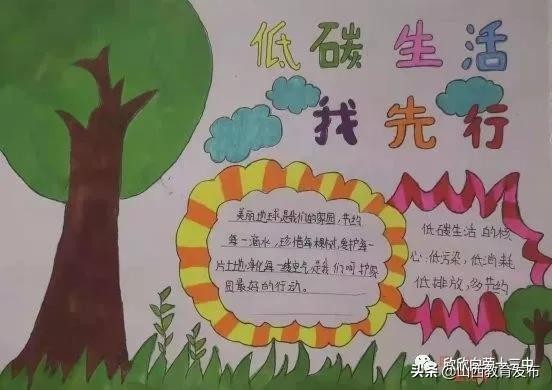 低碳生活
我先行
美丽地球是我们的家园，节约
每一滴水，珍惜每棵树，爱护每一
片土地，净化每一缕空气，是我们呵护家
园最好的行动。
低碳生活的核
心：低污染，低消耗
低排放，多节约
欣欣向荣十三中
头条 @山西教育发布